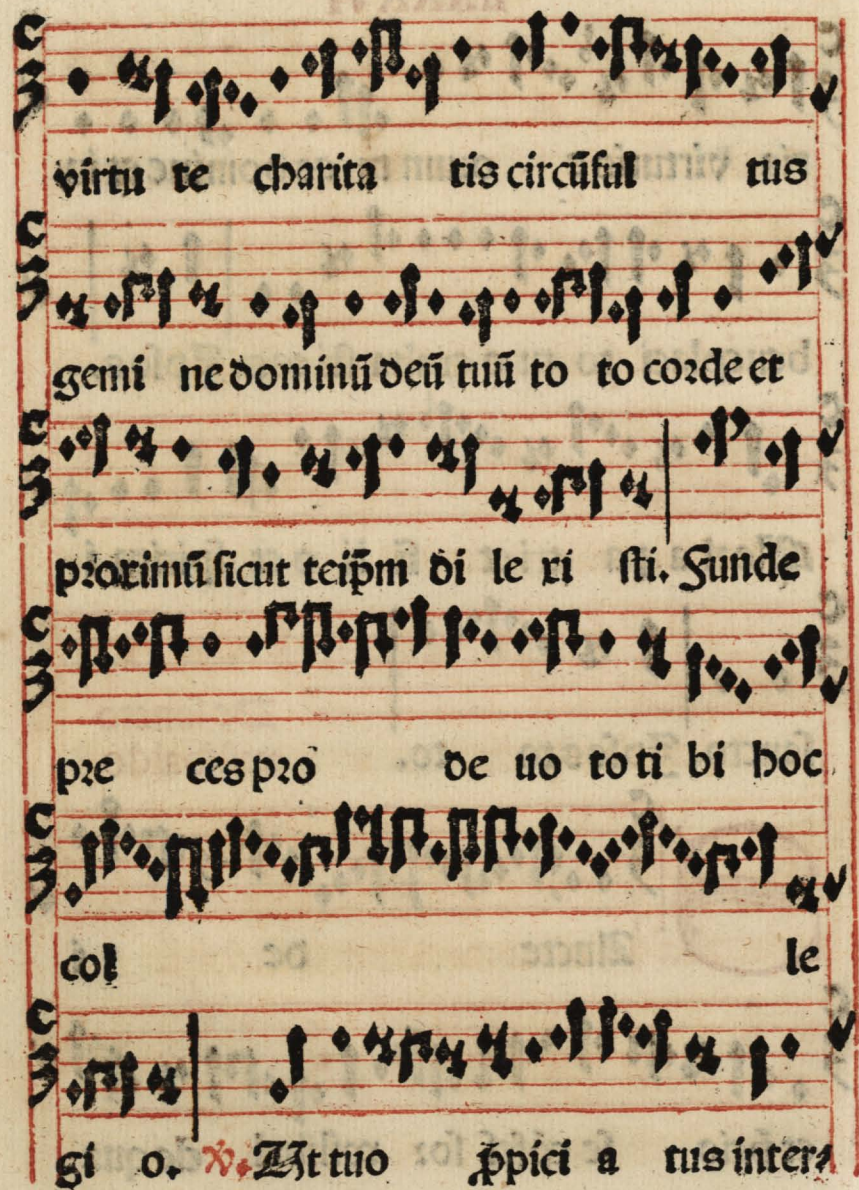 virtu te charita tis circūful tus
gemi ne dominū deū tuū to to corde et
proximū sicut teip̄m di le xi sti. Funde
pre ces pro de uo to ti bi hoc
col le
gi o. ℣. Ut tuo ꝓpici a tus inter⸗